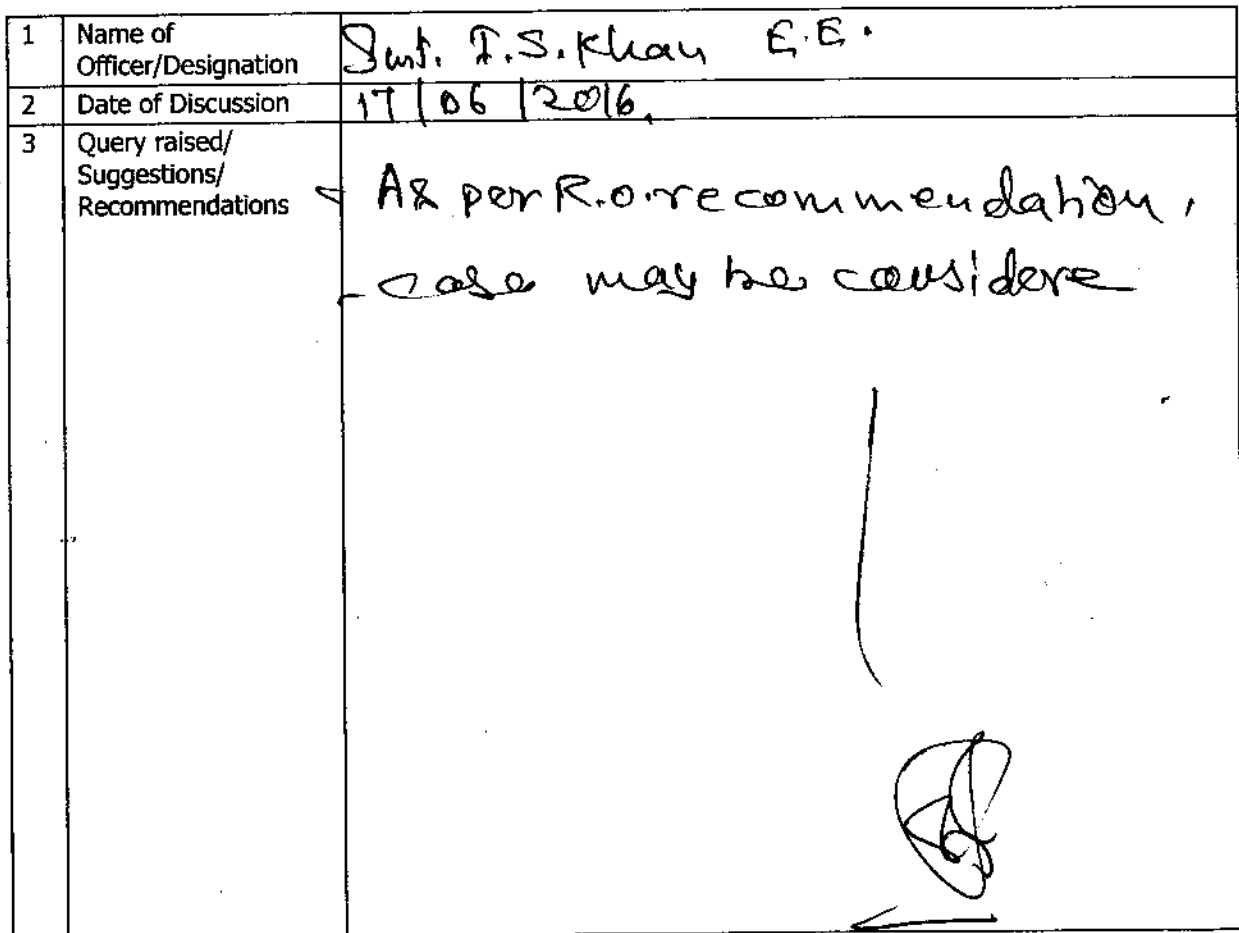 1 Name of Officer/Designation Smt. I.S. Khan E.E.
2 Date of Discussion 17/06/2016
3 Query raised/
Suggestions/
Recommendations
As per R.O. recommendation,
case may be considere